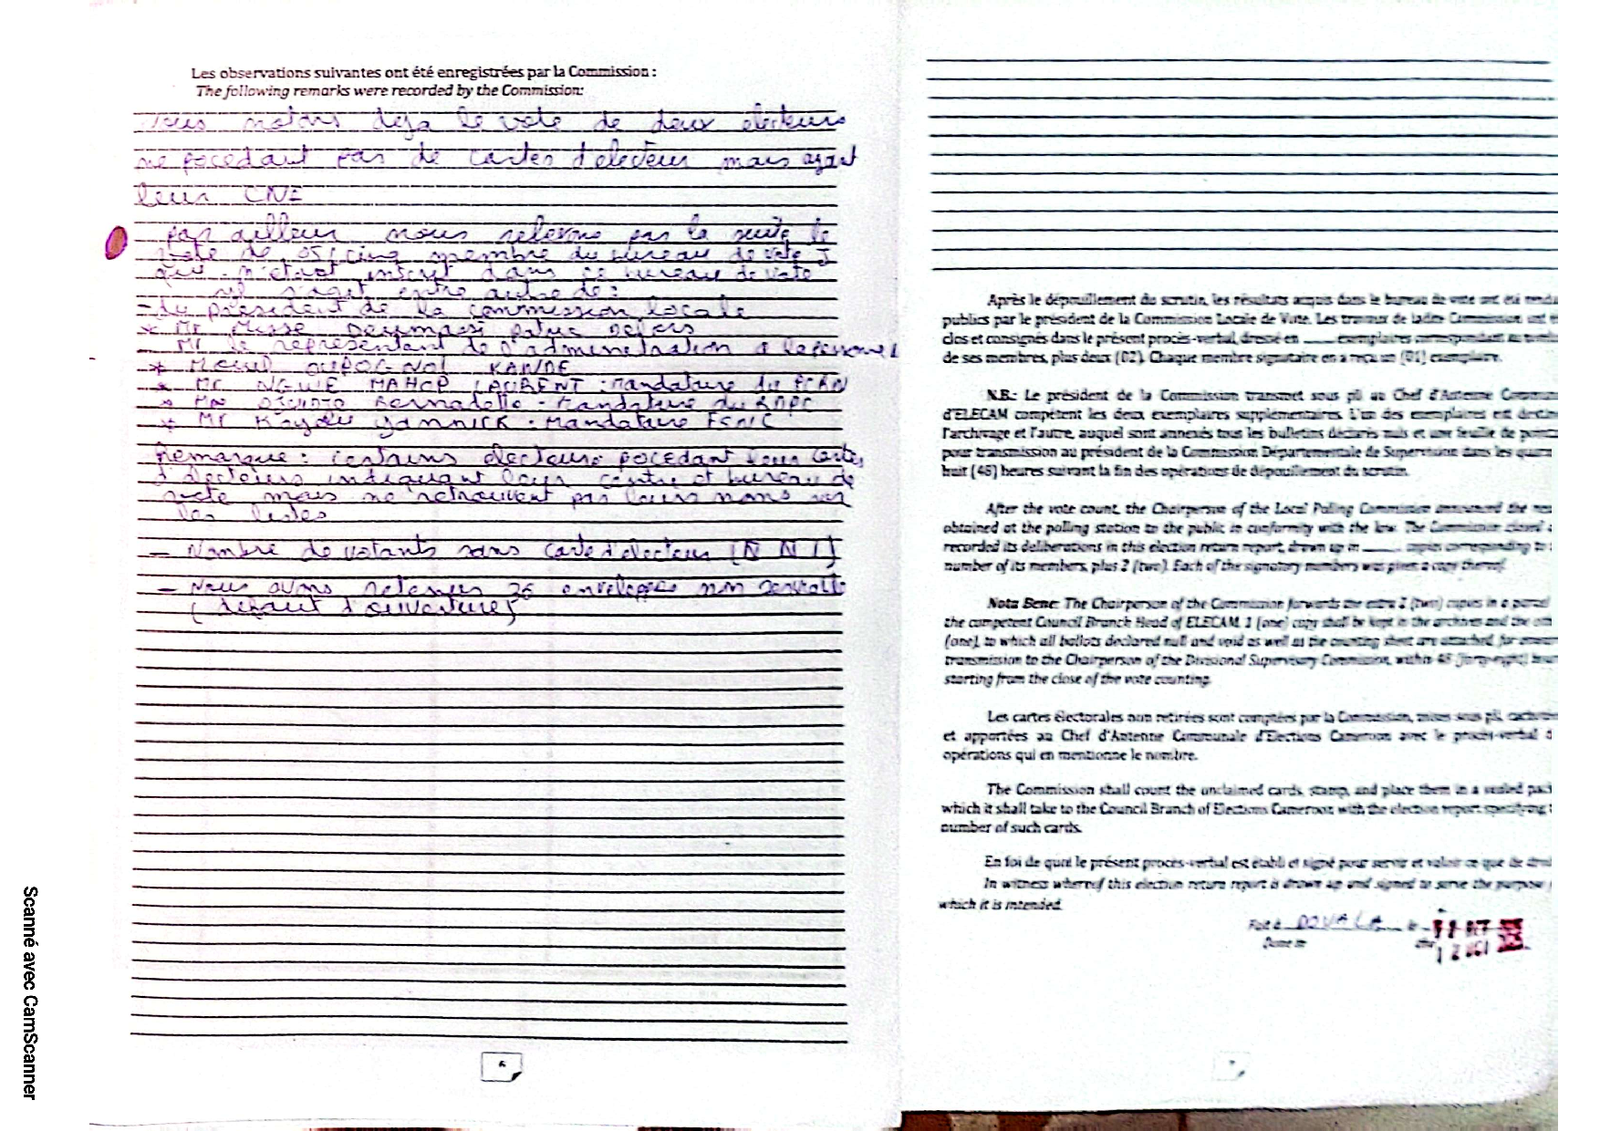 Les observations suivantes ont été enregistrées par la Commission :
The following remarks were recorded by the Commission:
nous notons deja le vote de deux electeurs
ne pocedant pas de cartes d'electeur mais ayant
leur CNI
par ailleur nous relevons par la suite le
vote de 05 (cinq membre du bureau de vote
qui n'etait inscrit dans ce bureau de vote
il s'agit entre autre de :
- du president de la commission locale
* Mr
Mr le representant de l'administration
* KANDE
* Mr NGWE MAHOP LAURENT : Mandature du PCRN
* Bernadette - Mandature du RDPC
* Mr YANNICK - Mandature FSNC
Remarque : certains electeurs pocedant leurs cartes
d'electeurs indiquant leur centre et bureau de
vote mais ne retrouvent pas leurs noms sur
les listes
- Nombre de votants sans carte d'electeur
- Nous avons retenus 26 enveloppes non
(defaut d'ouverture)
6
Après le dépouillement du scrutin, les résultats acquis dans le bureau de vote ont été
publics par le président de la Commission Locale de Vote. Les travaux de ladite Commission ont
clos et consignés dans le présent procès-verbal, dressé en ____ exemplaires correspondant au
de ses membres, plus deux (02). Chaque membre signataire en a reçu un (01) exemplaire.
N.B.: Le président de la Commission transmet sous pli au Chef d'Antenne
d'ELECAM compétent les deux exemplaires supplémentaires. L'un des exemplaires est
l'archivage et l'autre, auquel sont annexés tous les bulletins déclarés nuls et une feuille de
pour transmission au président de la Commission Départementale de Supervision dans les
huit (48) heures suivant la fin des opérations de dépouillement du scrutin.
After the vote count, the Chairperson of the Local Polling Commission announced the
obtained at the polling station to the public in conformity with the law. The Commission closed
recorded its deliberations in this election return report, drawn up in ____ copies corresponding to
number of its members, plus 2 (two). Each of the signatory members was given a copy thereof.
Nota Bene: The Chairperson of the Commission forwards the extra 2 (two) copies in a parcel
the competent Council Branch Head of ELECAM. 1 (one) copy shall be kept in the archives and the
(one), to which all ballots declared null and void as well as the counting sheet are attached, for
transmission to the Chairperson of the Divisional Supervisory Commission, within 48 (forty-eight)
starting from the close of the vote counting.
Les cartes électorales non retirées sont comptées par la Commission, mises sous pli,
et apportées au Chef d'Antenne Communale d'Elections Cameroon avec le procès-verbal
opérations qui en mentionne le nombre.
The Commission shall count the unclaimed cards, stamp, and place them in a sealed
which it shall take to the Council Branch of Elections Cameroon with the election report specifying
number of such cards.
En foi de quoi le présent procès-verbal est établi et signé pour servir et valoir ce que de
In witness whereof this election return report is drawn up and signed to serve the purpose
which it is intended.
Fait à DOUALA le
Done in
Scanné avec CamScanner